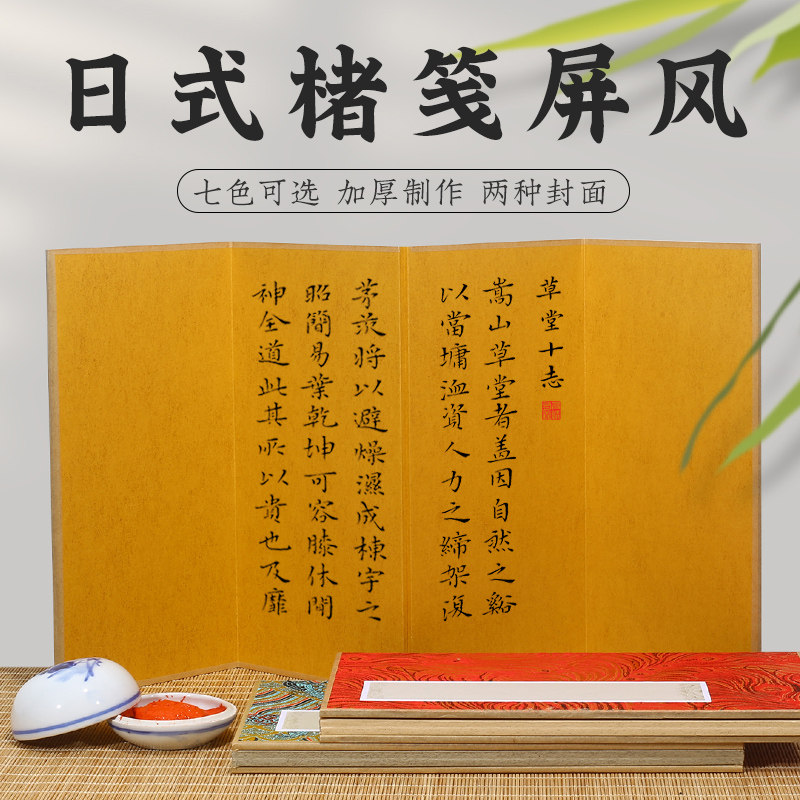 日式楮笺屏风
七色可选 加厚制作 两种封面
草堂十志
嵩山草堂者盖因自然之谿
以當墉洫資人力之締架復
茅茨将以避燥濕成棟宇之
昭簡易葉乾坤可容膝休閒
神全道此其所以貴也及靡